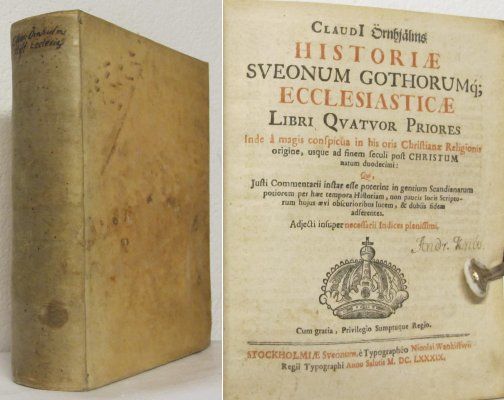 Claud Örnhjalms
Hist. Ecclesias
CLAUDI Örnhjälms
HISTORIÆ
SVEONUM GOTHORUMq́;
ECCLESIASTICÆ
LIBRI QVATVOR PRIORES
Inde â magis conspicua in his oris Christianæ Religionis
origine, usque ad finem seculi post CHRISTUM
natum duodecimi:
Qui,
Justi Commentarii instar esse poterint in gentium Scandianarum
potiorem per hæc tempora Historiam, non paucis locis Scripto-
rum hujus ævi obscurioribus lucem, & dubiis fidem
adferentes.
Adjecti insuper necessarii Indices plenissimi.
Andr.
Cum gratia, Privilegio Sumptuque Regio.
STOCKHOLMIÆ Sveonum, è Typographéo Nicolai Wankifwii
Regii Typographi Anno Salutis M. DC. LXXXIX.